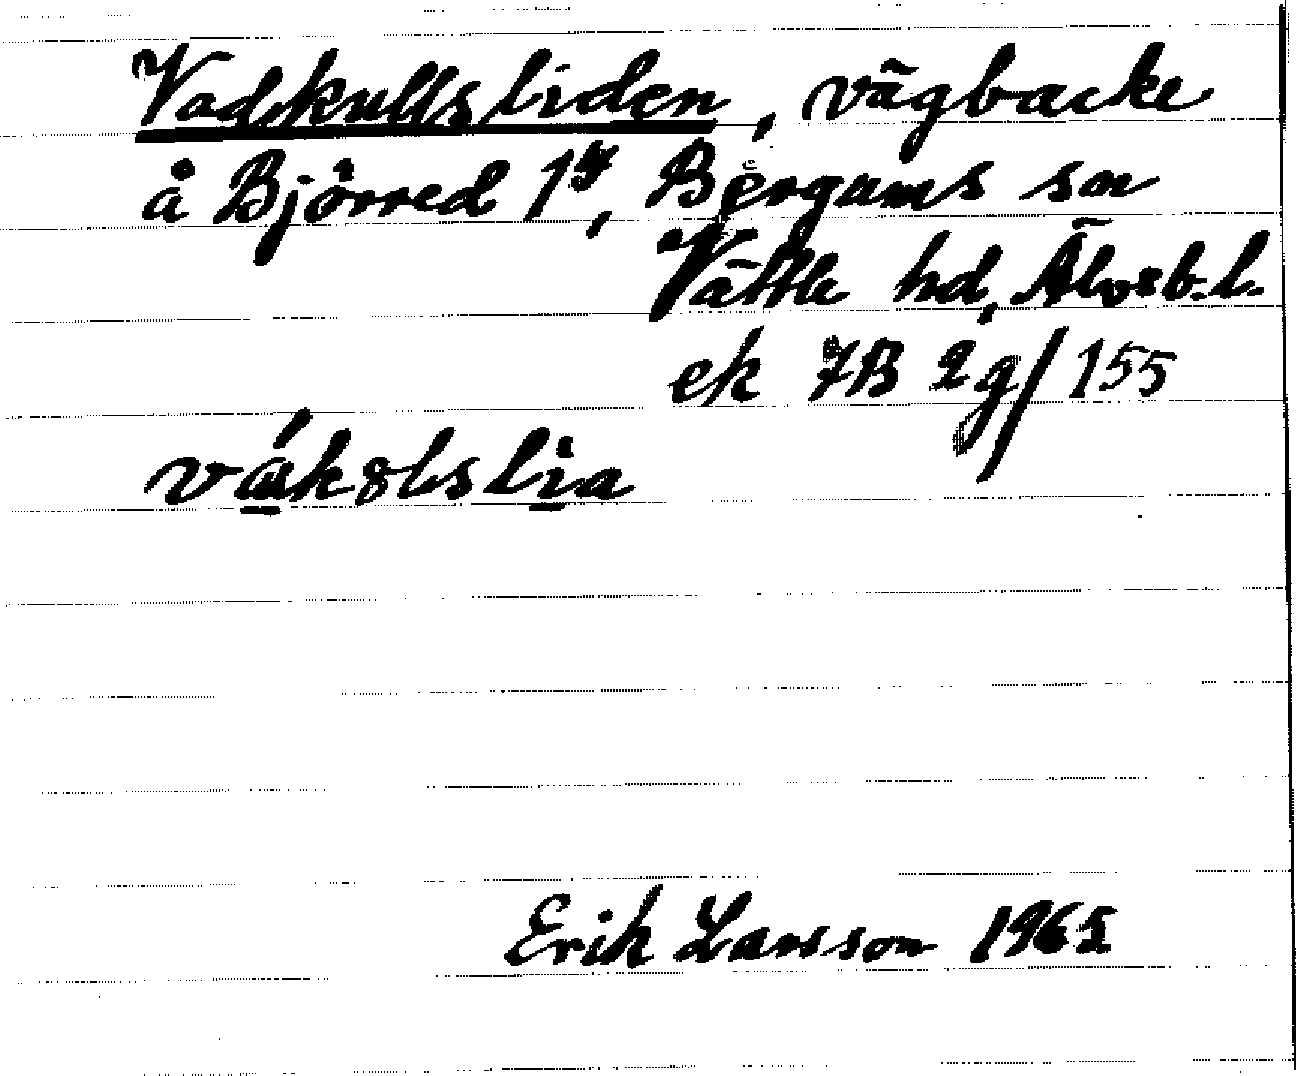 Vadskullsliden, vägbacke
å Björred 1⁴, Bergums sn
Vättle hd, Älvsb. l.
ek 7B 2g/155
vákolslia
Erik Larsson 1965